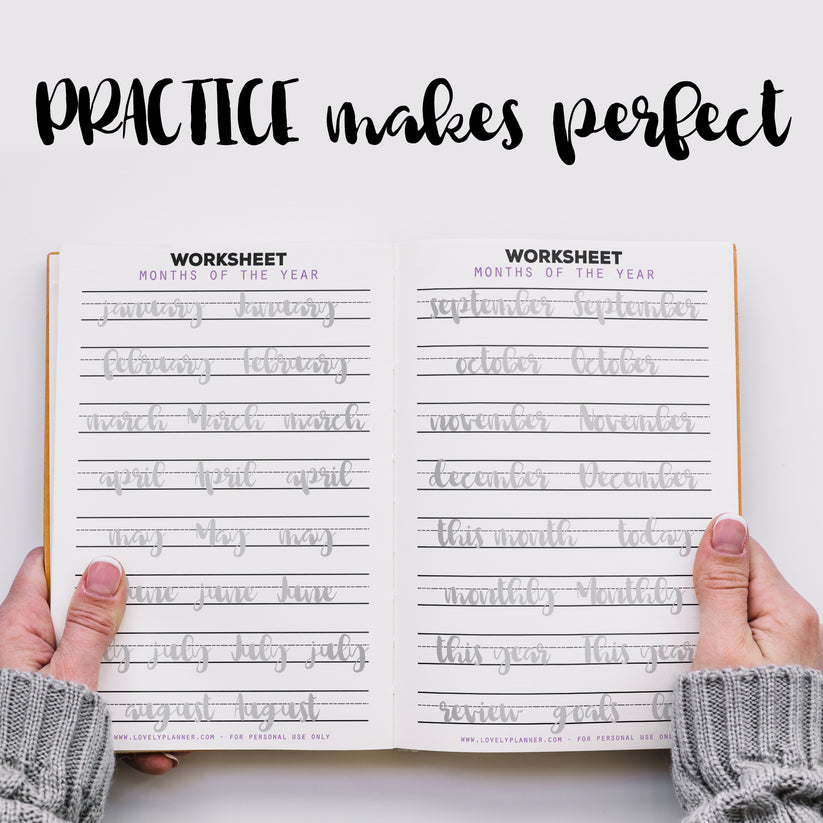 PRACTICE makes perfect
WORKSHEET
MONTHS OF THE YEAR
january January
february February
march March march
april April april
may May may
june June
july July july
august August
WWW.LOVELYPLANNER.COM - FOR PERSONAL USE ONLY
WORKSHEET
MONTHS OF THE YEAR
september September
october October
november November
december December
this month today
monthly Monthly
this year This year
review goals
WWW.LOVELYPLANNER.COM - FOR PERSONAL USE ONLY